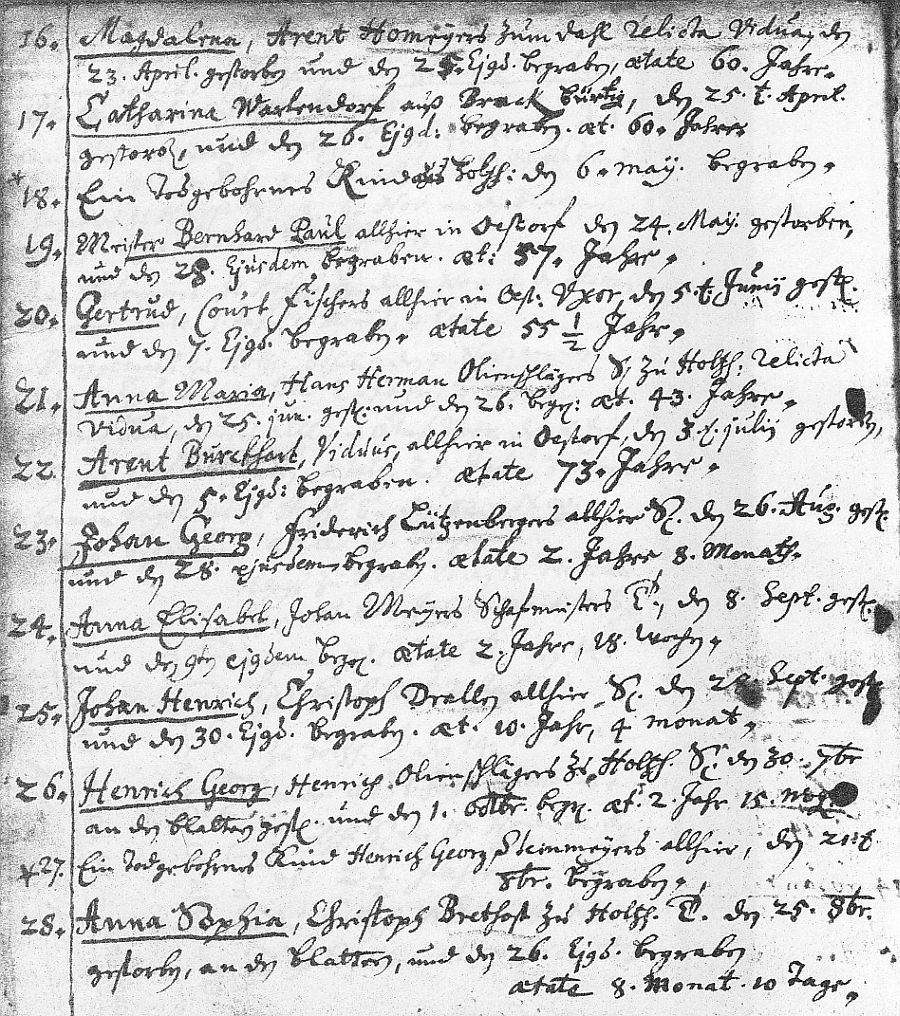 16. Magdalena, Arent Homeyers zum dahl relicta Vidua, den
23. April. gestorben und den 25. Ejgd. begraben, ætate 60. Jahre.
17. Catharina Warkendorf auß Brack bürtig, den 25. t. April.
gestorb, und den 26. Ejgd: begraben. æt. 60. Jahre
* 18. Ein Todgebohrnes Kind Holtzh: den 6. may. begraben.
19. Meister Bernhard Paul allhier in Oestorf den 24. May. gestorben,
und den 28. Ejusdem begraben. æt: 57. Jahre.
20. Gertrud, Court Fischers allhier in Oest: Uxor, den 5. t. Junij gest.
und den 7. Ejgd. begraben. ætate 55 1/2 Jahr.
21. Anna Maria, Hans Herman Olienschlägers S. zu Holtzh: relicta
Vidua, den 25. jun. gest: und den 26. begr: æt. 43. Jahre.
22. Arent Burckhart, Viduus, allhier in Oestorf, den 3. t. julij gestorben,
und den 5. Ejgd: begraben. ætate 73. Jahre.
23. Johan Georg, Friderich Lützenbergers allhier S. den 26. Aug. gest.
und den 28. ejusdem begraben. ætate 2. Jahre 8. Monath.
24. Anna Elisabet, Johan Meyers Schafmeisters T., den 8. Sept. gest.
und den 9ten ejusdem begr. ætate 2. Jahre, 18. Wochn.
25. Johan Henrich, Christoph Drallen allhier S. den Sept. gest.
und den 30. Ejgd. begraben. æt. 10. Jahr, 4 monat.
26. Henrich Georg, Henrich Olienschlägers zu Holtzh. S. den 30. 7br
an den blattern gest. und den 1. 8br. begr. æt. 2. Jahr 15.
* 27. Ein todgebohrnes Kind Henrich Georg Steinmeyers allhier, den
8br. begraben.
28. Anna Sophia, Christoph Brethost zu Holtzh. T. den 25. 8br.
gestorben, an den blattern, und den 26. Ejgd. begraben
ætate 8. Monat. 10 Tage.